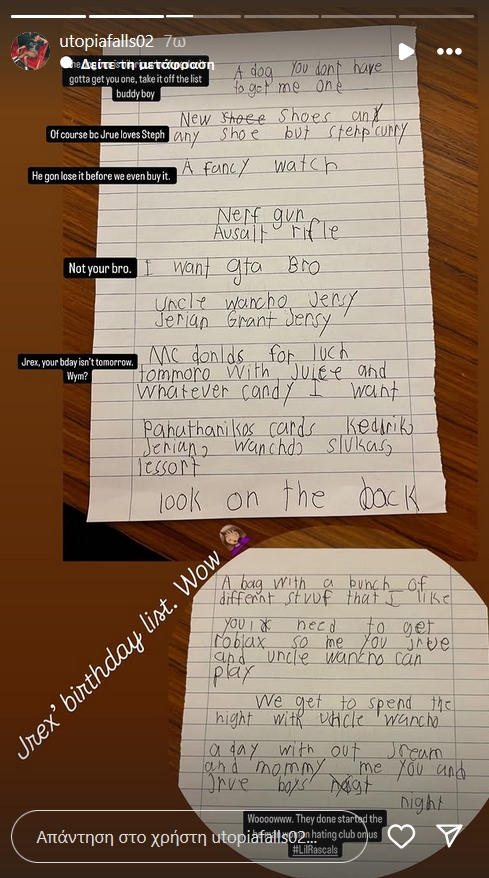 utopiafalls02 7ω
Δείτε τη μετάφραση
gotta get you one, take it off the list
buddy boy
A dog you dont have
to get me one
New shoes and
any shoe but stehp curry
Of course bc Jrue loves Steph
A fancy watch
He gon lose it before we even buy it.
Nerf gun
Ausalt rifle
I want gta Bro
Not your bro.
uncle wancho Jersy
Jerian Grant Jersy
Mc donlds for luch
tommoro with Juice and
whatever candy I want
Jrex, your bday isn't tomorrow.
Wym?
Panathanikos cards Kedrik,
Jerian, Wancho, slukas,
lessort
look on the back
Jrex' birthday list. Wow
A bag with a bunch of
differnt stuuf that I like
you need to get
roblax so me you Jrue
and uncle wancho can
play
We get to spend the
night with uncle wancho
a day with out Jream
and mommy me you and
Jrue boys
night
Woooowww. They done started the
hating club on us
#LilRascals
Απάντηση στο χρήστη utopiafalls02...